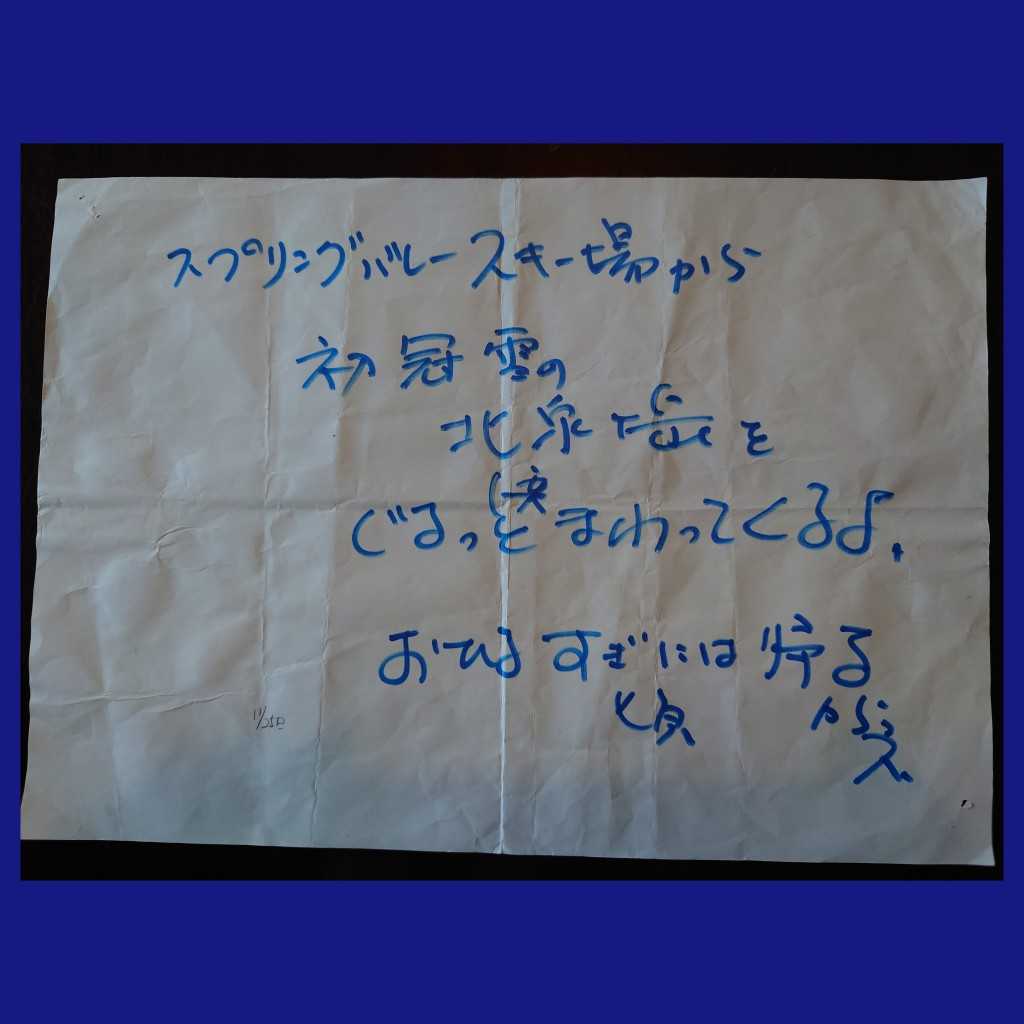 スプリングバレースキー場から
初冠雪の
北泉ヶ岳を
ぐるっと
まわってくるよ、
おひるすぎには帰る
頃 から